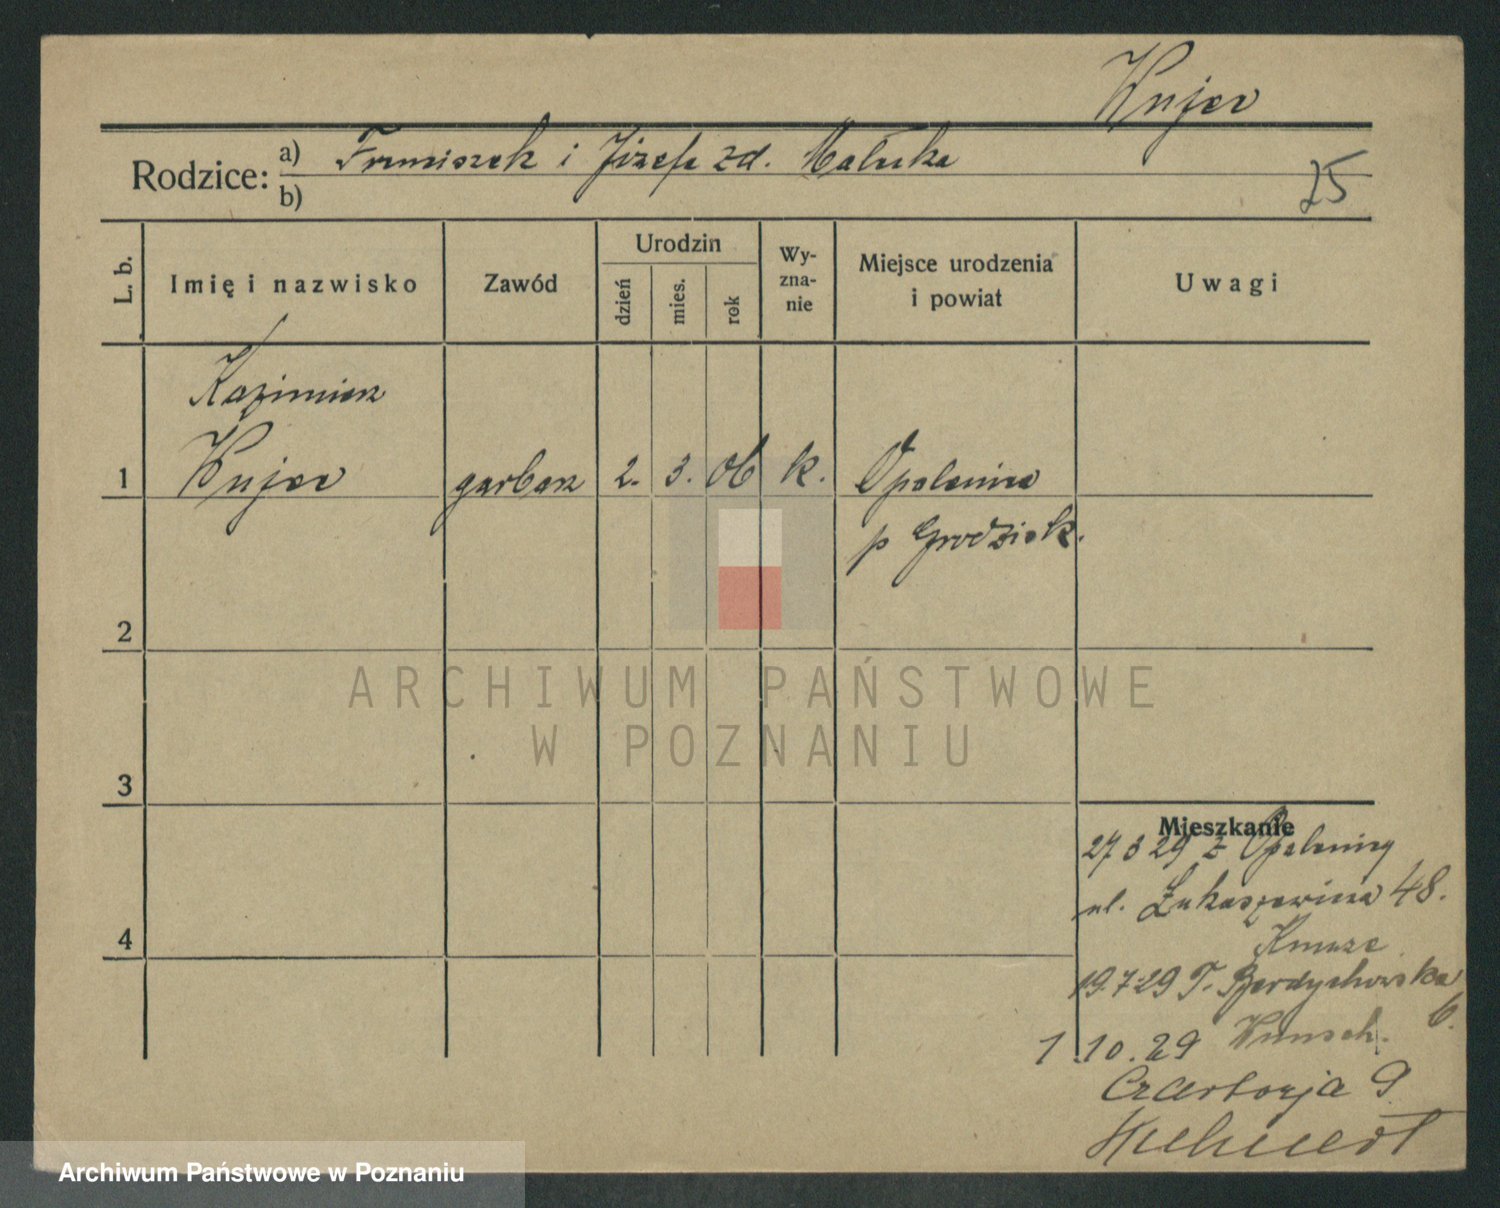 Kujer
Rodzice: a) Franciszek i Józefa zd. Małuka
b)
25
L. b.
Imię i nazwisko
Zawód
Urodzin
dzień
mies.
rok
Wy-
zna-
nie
Miejsce urodzenia
i powiat
Uwagi
Kazimierz
1 Kujer garbarz 2. 3. 06 k. Opalenica
p Grodzisk.
2
ARCHIWUM PAŃSTWOWE
W POZNANIU
3
Mieszkanie
27 3 29 z Opalenicy
ul. Łukaszewicza 48.
4
19.7.29 T. Berdychowska
6.
1.10.29 Wunsch.
Czartorja 9
Archiwum Państwowe w Poznaniu